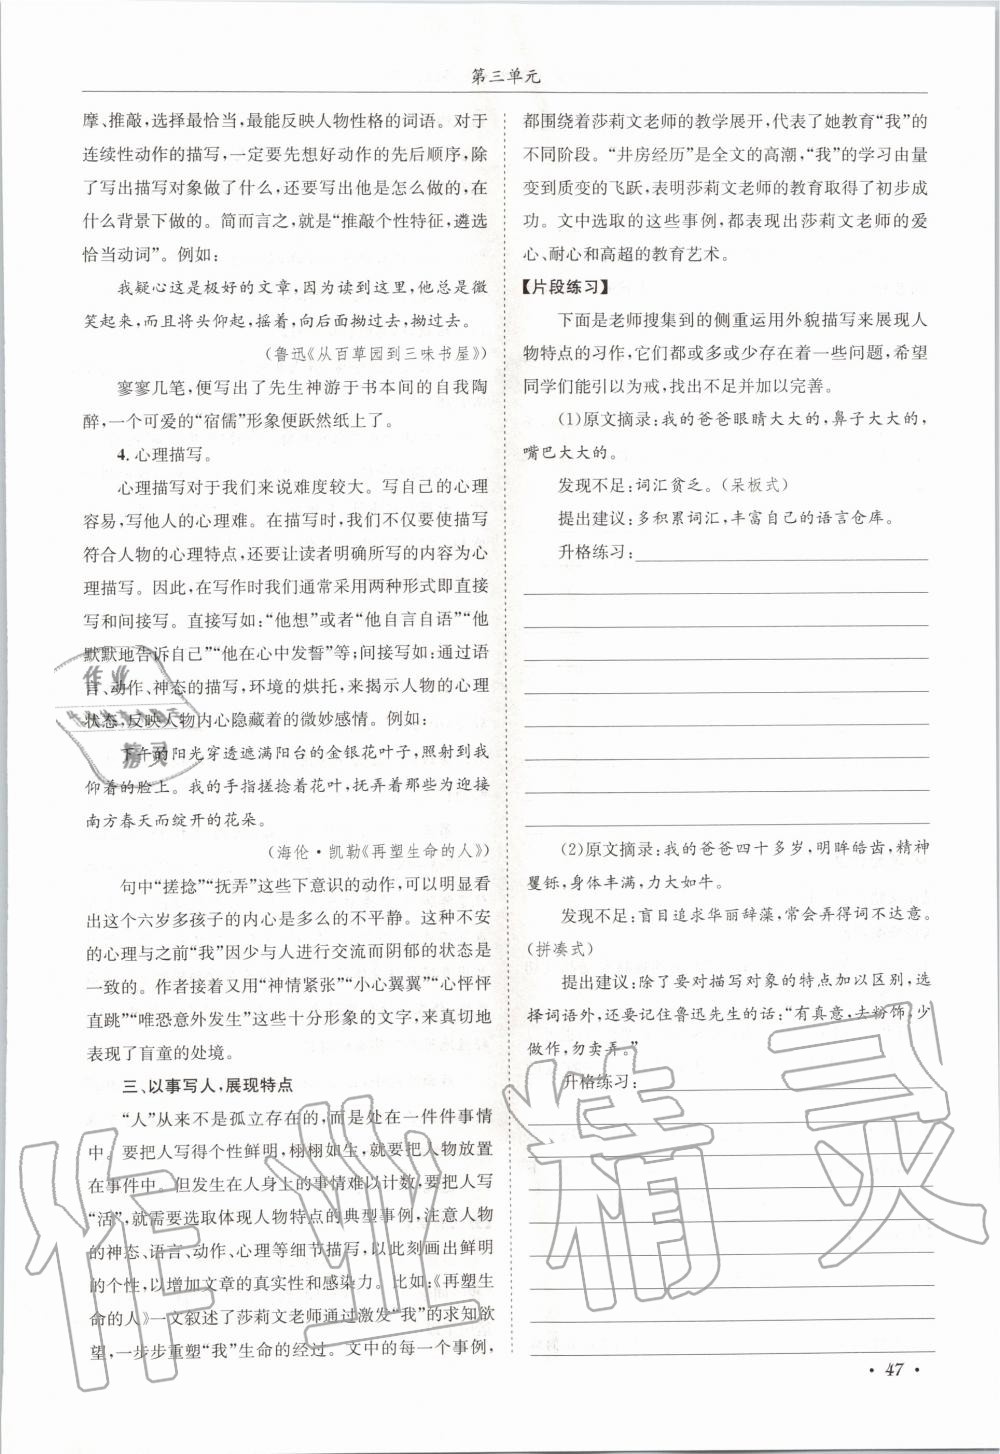 第三单元
摩、推敲,选择最恰当,最能反映人物性格的词语。对于
连续性动作的描写,一定要先想好动作的先后顺序,除
了写出描写对象做了什么,还要写出他是怎么做的,在
什么背景下做的。简而言之,就是“推敲个性特征,遴选
恰当动词”。例如:
我疑心这是极好的文章,因为读到这里,他总是微
笑起来,而且将头仰起,摇着,向后面拗过去,拗过去。
(鲁迅《从百草园到三味书屋》)
寥寥几笔,便写出了先生神游于书本间的自我陶
醉,一个可爱的“宿儒”形象便跃然纸上了。
4. 心理描写。
心理描写对于我们来说难度较大。写自己的心理
容易,写他人的心理难。在描写时,我们不仅要使描写
符合人物的心理特点,还要让读者明确所写的内容为心
理描写。因此,在写作时我们通常采用两种形式即直接
写和间接写。直接写如:“他想”或者“他自言自语”“他
默默地告诉自己”“他在心中发誓”等;间接写如:通过语
言、动作、神态的描写,环境的烘托,来揭示人物的心理
状态,反映人物内心隐藏着的微妙感情。例如:
下午的阳光穿透遮满阳台的金银花叶子,照射到我
仰着的脸上。我的手指搓捻着花叶,抚弄着那些为迎接
南方春天而绽开的花朵。
(海伦·凯勒《再塑生命的人》)
句中“搓捻”“抚弄”这些下意识的动作,可以明显看
出这个六岁多孩子的内心是多么的不平静。这种不安
的心理与之前“我”因少与人进行交流而阴郁的状态是
一致的。作者接着又用“神情紧张”“小心翼翼”“心怦怦
直跳”“唯恐意外发生”这些十分形象的文字,来真切地
表现了盲童的处境。
三、以事写人,展现特点
“人”从来不是孤立存在的,而是处在一件件事情
中。要把人写得个性鲜明,栩栩如生,就要把人物放置
在事件中。但发生在人身上的事情难以计数,要把人写
“活”,就需要选取体现人物特点的典型事例,注意人物
的神态、语言、动作、心理等细节描写,以此刻画出鲜明
的个性,以增加文章的真实性和感染力。比如:《再塑生
命的人》一文叙述了莎莉文老师通过激发“我”的求知欲
望,一步步重塑“我”生命的经过。文中的每一个事例,
都围绕着莎莉文老师的教学展开,代表了她教育“我”的
不同阶段。“井房经历”是全文的高潮,“我”的学习由量
变到质变的飞跃,表明莎莉文老师的教育取得了初步成
功。文中选取的这些事例,都表现出莎莉文老师的爱
心、耐心和高超的教育艺术。
【片段练习】
下面是老师搜集到的侧重运用外貌描写来展现人
物特点的习作,它们都或多或少存在着一些问题,希望
同学们能引以为戒,找出不足并加以完善。
(1)原文摘录:我的爸爸眼睛大大的,鼻子大大的,
嘴巴大大的。
发现不足:词汇贫乏。(呆板式)
提出建议:多积累词汇,丰富自己的语言仓库。
升格练习:
(2)原文摘录:我的爸爸四十多岁,明眸皓齿,精神
矍铄,身体丰满,力大如牛。
发现不足:盲目追求华丽辞藻,常会弄得词不达意。
(拼凑式)
提出建议:除了要对描写对象的特点加以区别,选
择词语外,还要记住鲁迅先生的话:“有真意,去粉饰,少
做作,勿卖弄。”
升格练习:
· 47 ·
作业
精灵
作业精灵